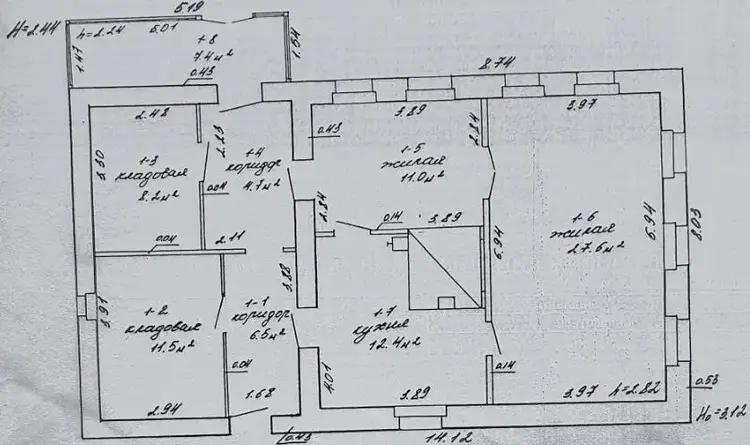 5.19
H=2.44
h=2.24
5.01
1-8
7.4 м²
1.47
1.54
0.43
8.74
2.48
3.89
3.97
2.23
0.43
2.84
1-3
кладовая
8.2 м²
3.30
1-4
коридор
4.7 м²
1-5
жилая
11.0 м²
0.04
2.84
0.14
3.89
1-6
жилая
27.6 м²
6.94
6.94
8.03
2.11
0.04
3.88
3.91
1-2
кладовая
11.5 м²
1-1
коридор
6.5 м²
1-7
кухня
12.4 м²
0.04
4.01
0.14
1.68
2.94
3.89
3.97
h=2.82
0.53
H₀=3.12
0.43
14.12